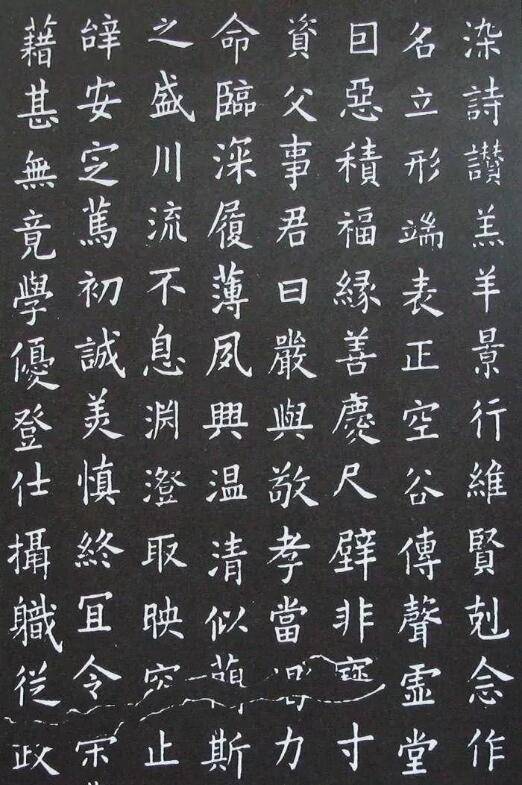 染詩讃羔羊景行維賢剋念作
名立形端表正空谷傳聲虛堂
囙惡積福縁善慶尺璧非寶寸
資父事君曰嚴與敬孝當力
命臨深履薄夙興温清似斯
之盛川流不息渊澄取映容止
辝安定篤初誠美慎終冝令
藉甚無竟學優登仕攝職従政